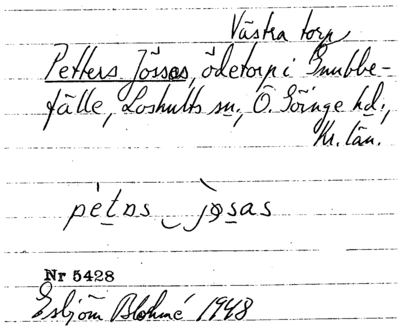 Västra torp
Petters Jössas, ödetorp i Gnubbe-
fälle, Loshults sn., Ö. Göinge hd.,
Kr. län.
pètns ‿ jòsas
Nr 5428
Esbjörn Blohmé 1948